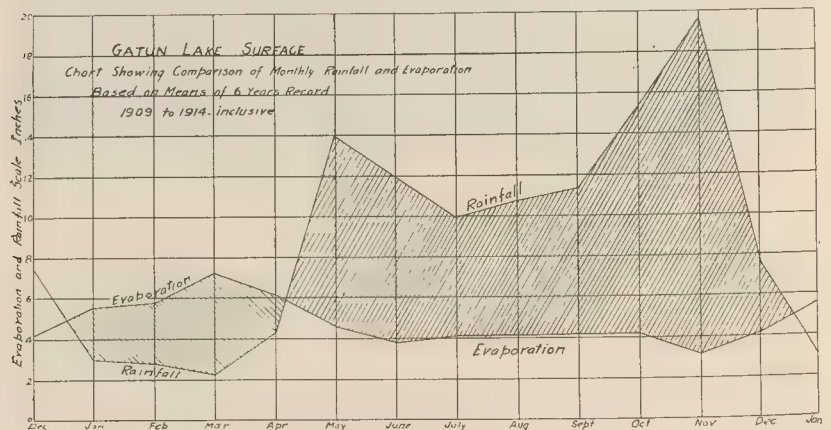 GATUN LAKE SURFACE
Chart Showing Comparison of Monthly Rainfall and Evaporation
Based on Means of 6 Years Record
1909 to 1914. inclusive
Evaporation and Rainfall Scale Inches
20
18
16
14
12
10
8
6
4
2
0
Evaporation
Rainfall
Rainfall
Evaporation
Dec Jan Feb Mar Apr May June July Aug Sept Oct Nov Dec Jan